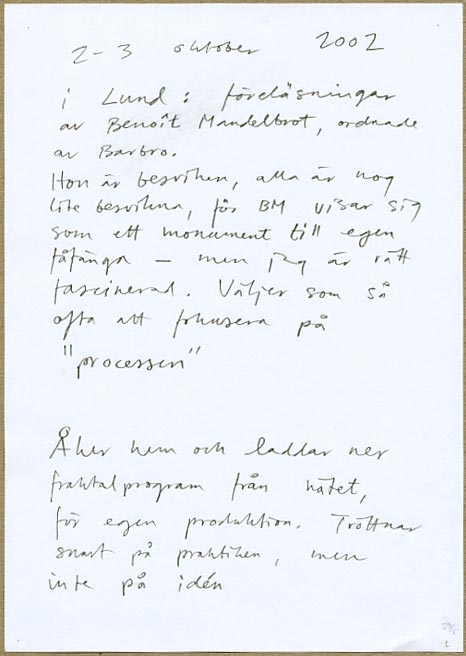 2-3 oktober 2002
i Lund: föreläsningar
av Benoît Mandelbrot, ordnade
av Barbro.
Hon är besviken, alla är nog
lite besvikna, för BM visar sig
som ett monument till egen
fåfänga - men jag är rätt
fascinerad. Väljer som så
ofta att fokusera på
"processen"
Åker hem och laddar ner
fraktalprogram från nätet,
för egen produktion. Tröttnar
snart på praktiken, men
inte på idén